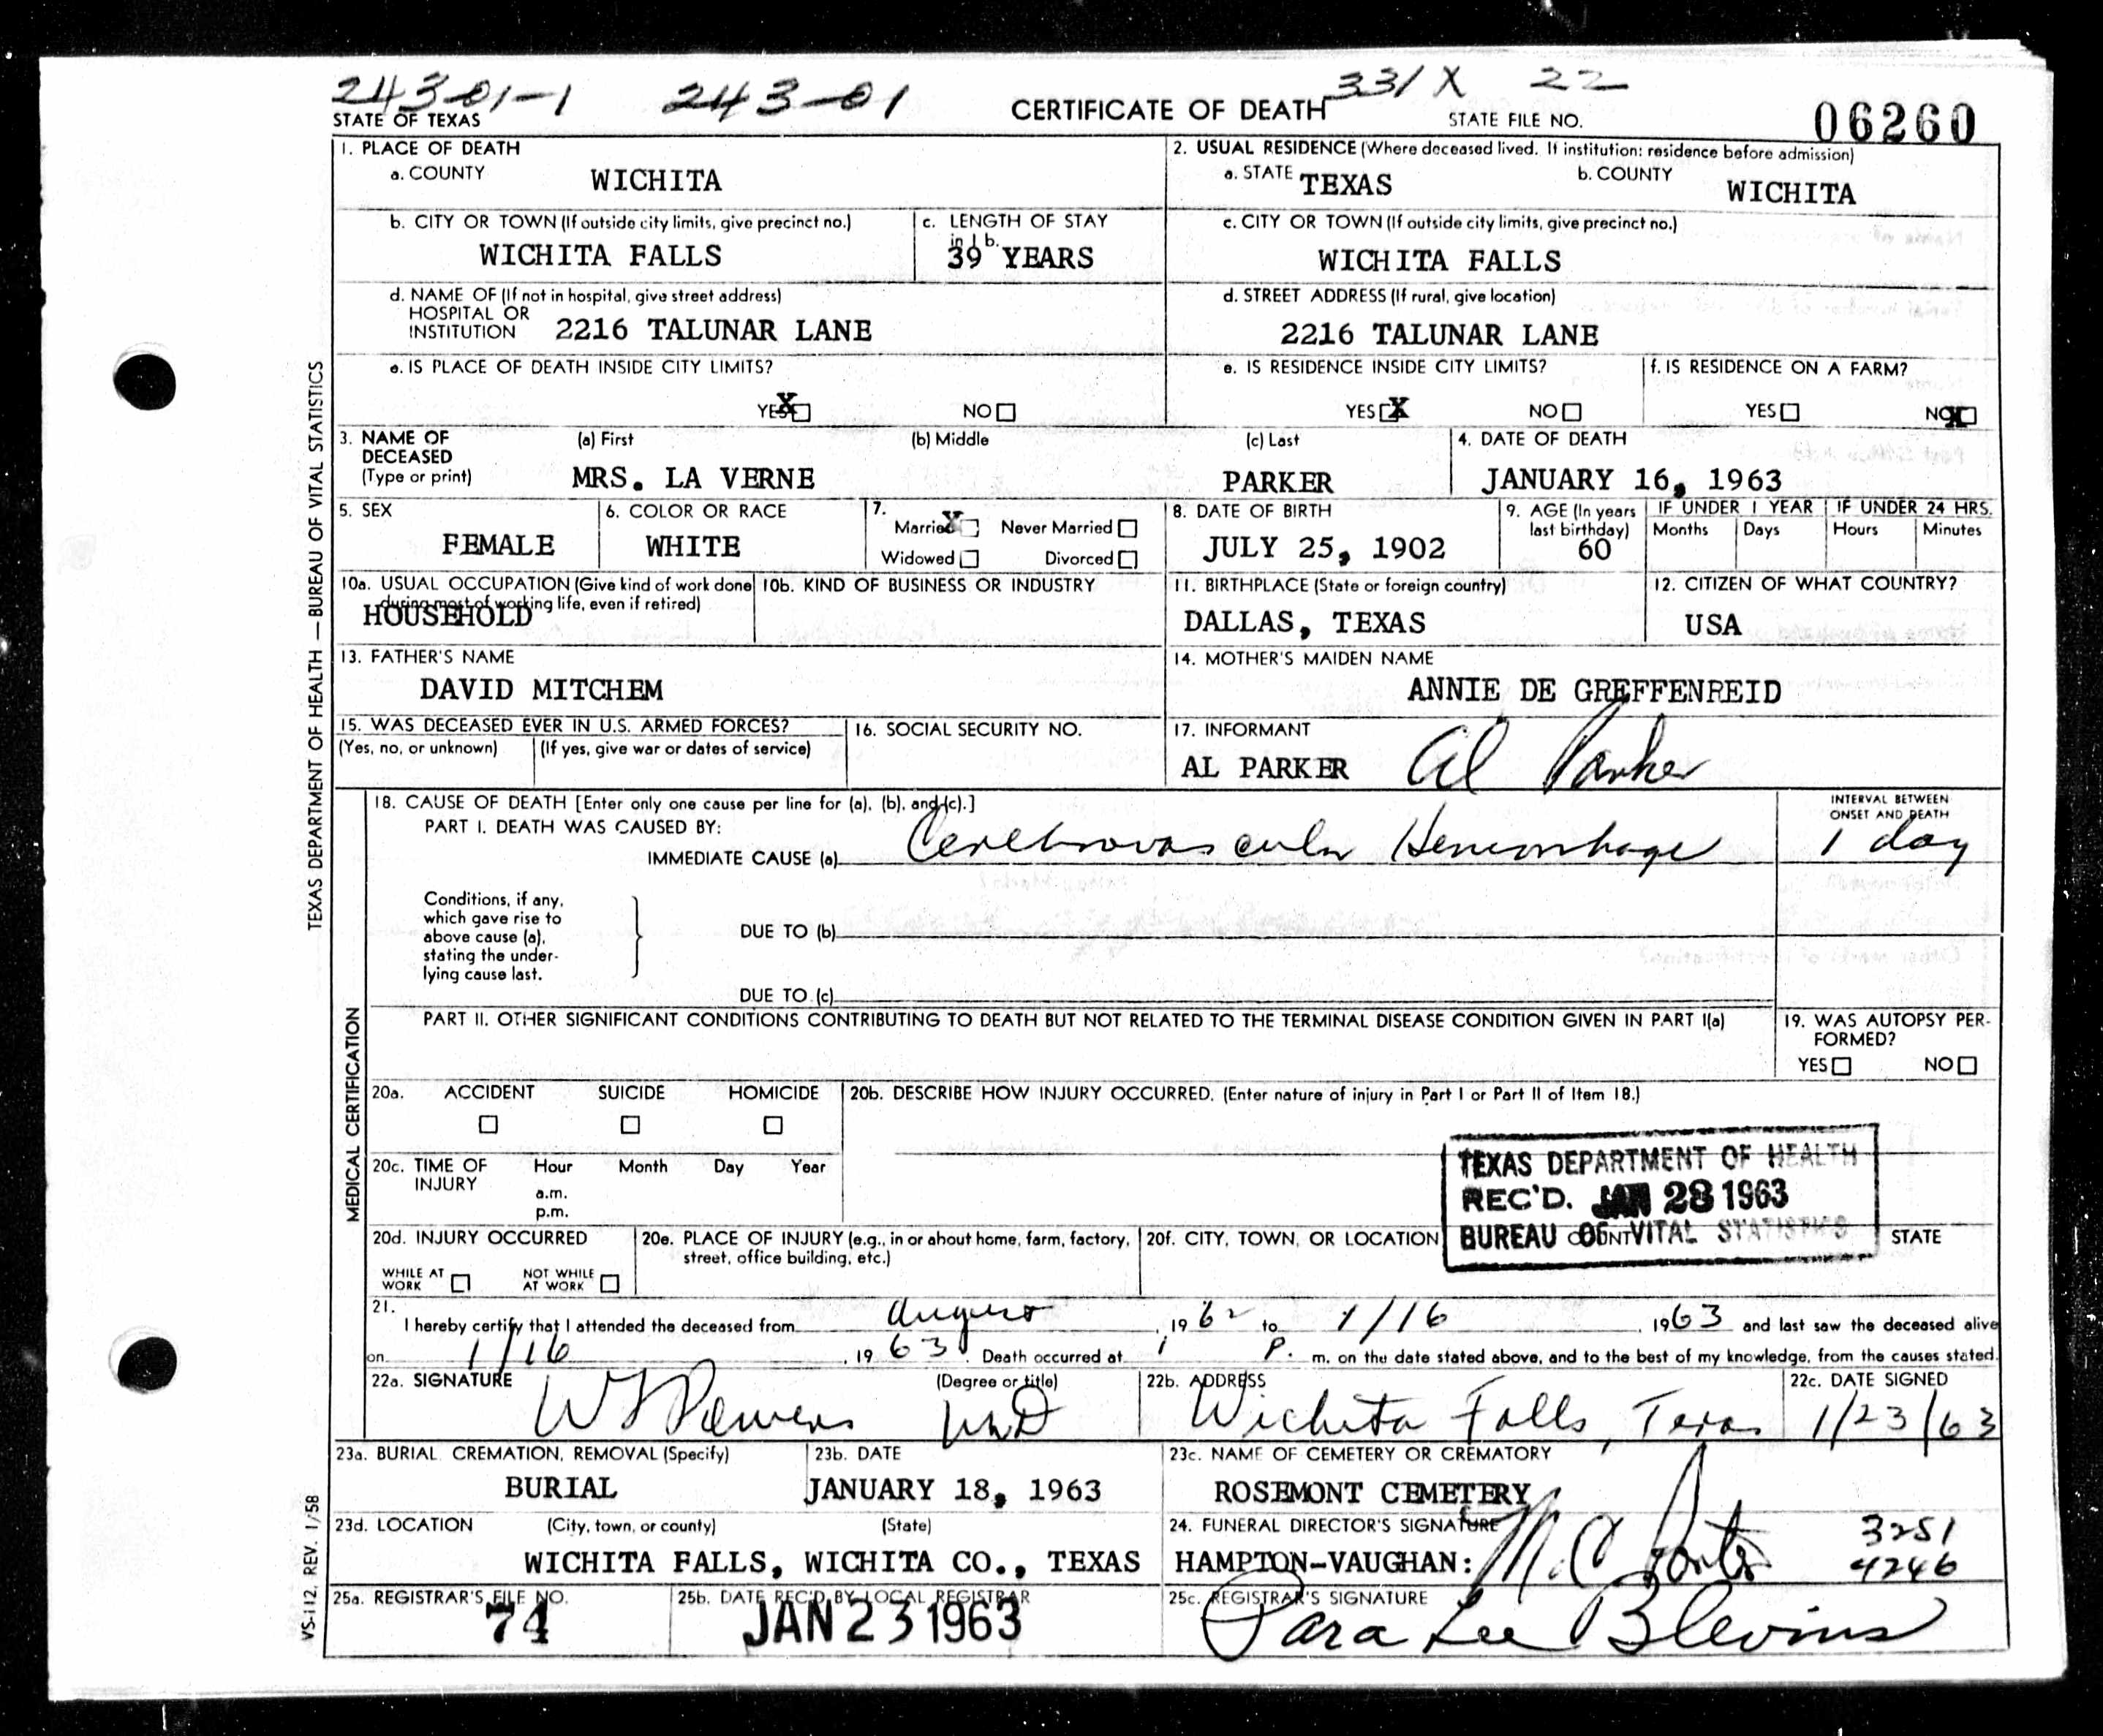 243-01-1 243-01 331X 22
STATE OF TEXAS CERTIFICATE OF DEATH STATE FILE NO. 06260
1. PLACE OF DEATH
a. COUNTY WICHITA
2. USUAL RESIDENCE (Where deceased lived. If institution: residence before admission)
a. STATE TEXAS b. COUNTY WICHITA
b. CITY OR TOWN (If outside city limits, give precinct no.)
WICHITA FALLS
c. LENGTH OF STAY
in 1 b.
39 YEARS
c. CITY OR TOWN (If outside city limits, give precinct no.)
WICHITA FALLS
d. NAME OF (If not in hospital, give street address)
HOSPITAL OR
INSTITUTION 2216 TALUNAR LANE
d. STREET ADDRESS (If rural, give location)
2216 TALUNAR LANE
e. IS PLACE OF DEATH INSIDE CITY LIMITS?
YES X NO
e. IS RESIDENCE INSIDE CITY LIMITS?
YES X NO
f. IS RESIDENCE ON A FARM?
YES NO X
3. NAME OF
DECEASED
(Type or print)
(a) First (b) Middle (c) Last
MRS. LA VERNE PARKER
4. DATE OF DEATH
JANUARY 16, 1963
5. SEX
FEMALE
6. COLOR OR RACE
WHITE
7.
Married X Never Married
Widowed Divorced
8. DATE OF BIRTH
JULY 25, 1902
9. AGE (In years
last birthday)
60
IF UNDER 1 YEAR IF UNDER 24 HRS.
Months Days Hours Minutes
10a. USUAL OCCUPATION (Give kind of work done
during most of working life, even if retired)
HOUSEHOLD
10b. KIND OF BUSINESS OR INDUSTRY
11. BIRTHPLACE (State or foreign country)
DALLAS, TEXAS
12. CITIZEN OF WHAT COUNTRY?
USA
13. FATHER'S NAME
DAVID MITCHEM
14. MOTHER'S MAIDEN NAME
ANNIE DE GREFFENREID
15. WAS DECEASED EVER IN U.S. ARMED FORCES?
(Yes, no, or unknown) (If yes, give war or dates of service)
16. SOCIAL SECURITY NO.
17. INFORMANT
AL PARKER Al Parker
18. CAUSE OF DEATH [Enter only one cause per line for (a), (b), and (c).]
PART I. DEATH WAS CAUSED BY:
IMMEDIATE CAUSE (a) Cerebrovascular Hemorrhage
INTERVAL BETWEEN
ONSET AND DEATH
1 day
Conditions, if any,
which gave rise to
above cause (a),
stating the under-
lying cause last.
DUE TO (b)
DUE TO (c)
PART II. OTHER SIGNIFICANT CONDITIONS CONTRIBUTING TO DEATH BUT NOT RELATED TO THE TERMINAL DISEASE CONDITION GIVEN IN PART I(a)
19. WAS AUTOPSY PER-
FORMED?
YES NO
20a. ACCIDENT SUICIDE HOMICIDE
20b. DESCRIBE HOW INJURY OCCURRED. (Enter nature of injury in Part I or Part II of Item 18.)
20c. TIME OF
INJURY
Hour Month Day Year
a.m.
p.m.
TEXAS DEPARTMENT OF HEALTH
REC'D. JAN 28 1963
BUREAU OF VITAL STATISTICS
20d. INJURY OCCURRED
WHILE AT
WORK
NOT WHILE
AT WORK
20e. PLACE OF INJURY (e.g., in or about home, farm, factory,
street, office building, etc.)
20f. CITY, TOWN, OR LOCATION COUNTY STATE
21.
I hereby certify that I attended the deceased from August, 1962 to 1/16, 1963 and last saw the deceased alive
on 1/16, 1963. Death occurred at 1 P. m. on the date stated above, and to the best of my knowledge, from the causes stated.
22a. SIGNATURE (Degree or title)
MD
22b. ADDRESS
Wichita Falls, Texas
22c. DATE SIGNED
1/23/63
23a. BURIAL CREMATION, REMOVAL (Specify)
BURIAL
23b. DATE
JANUARY 18, 1963
23c. NAME OF CEMETERY OR CREMATORY
ROSEMONT CEMETERY
23d. LOCATION (City, town, or county) (State)
WICHITA FALLS, WICHITA CO., TEXAS
24. FUNERAL DIRECTOR'S SIGNATURE
HAMPTON-VAUGHAN: M.C. Porter
3251
4246
25a. REGISTRAR'S FILE NO.
74
25b. DATE REC'D BY LOCAL REGISTRAR
JAN 23 1963
25c. REGISTRAR'S SIGNATURE
Para Lee Blevins
TEXAS DEPARTMENT OF HEALTH — BUREAU OF VITAL STATISTICS
MEDICAL CERTIFICATION
VS-112, REV. 1/58